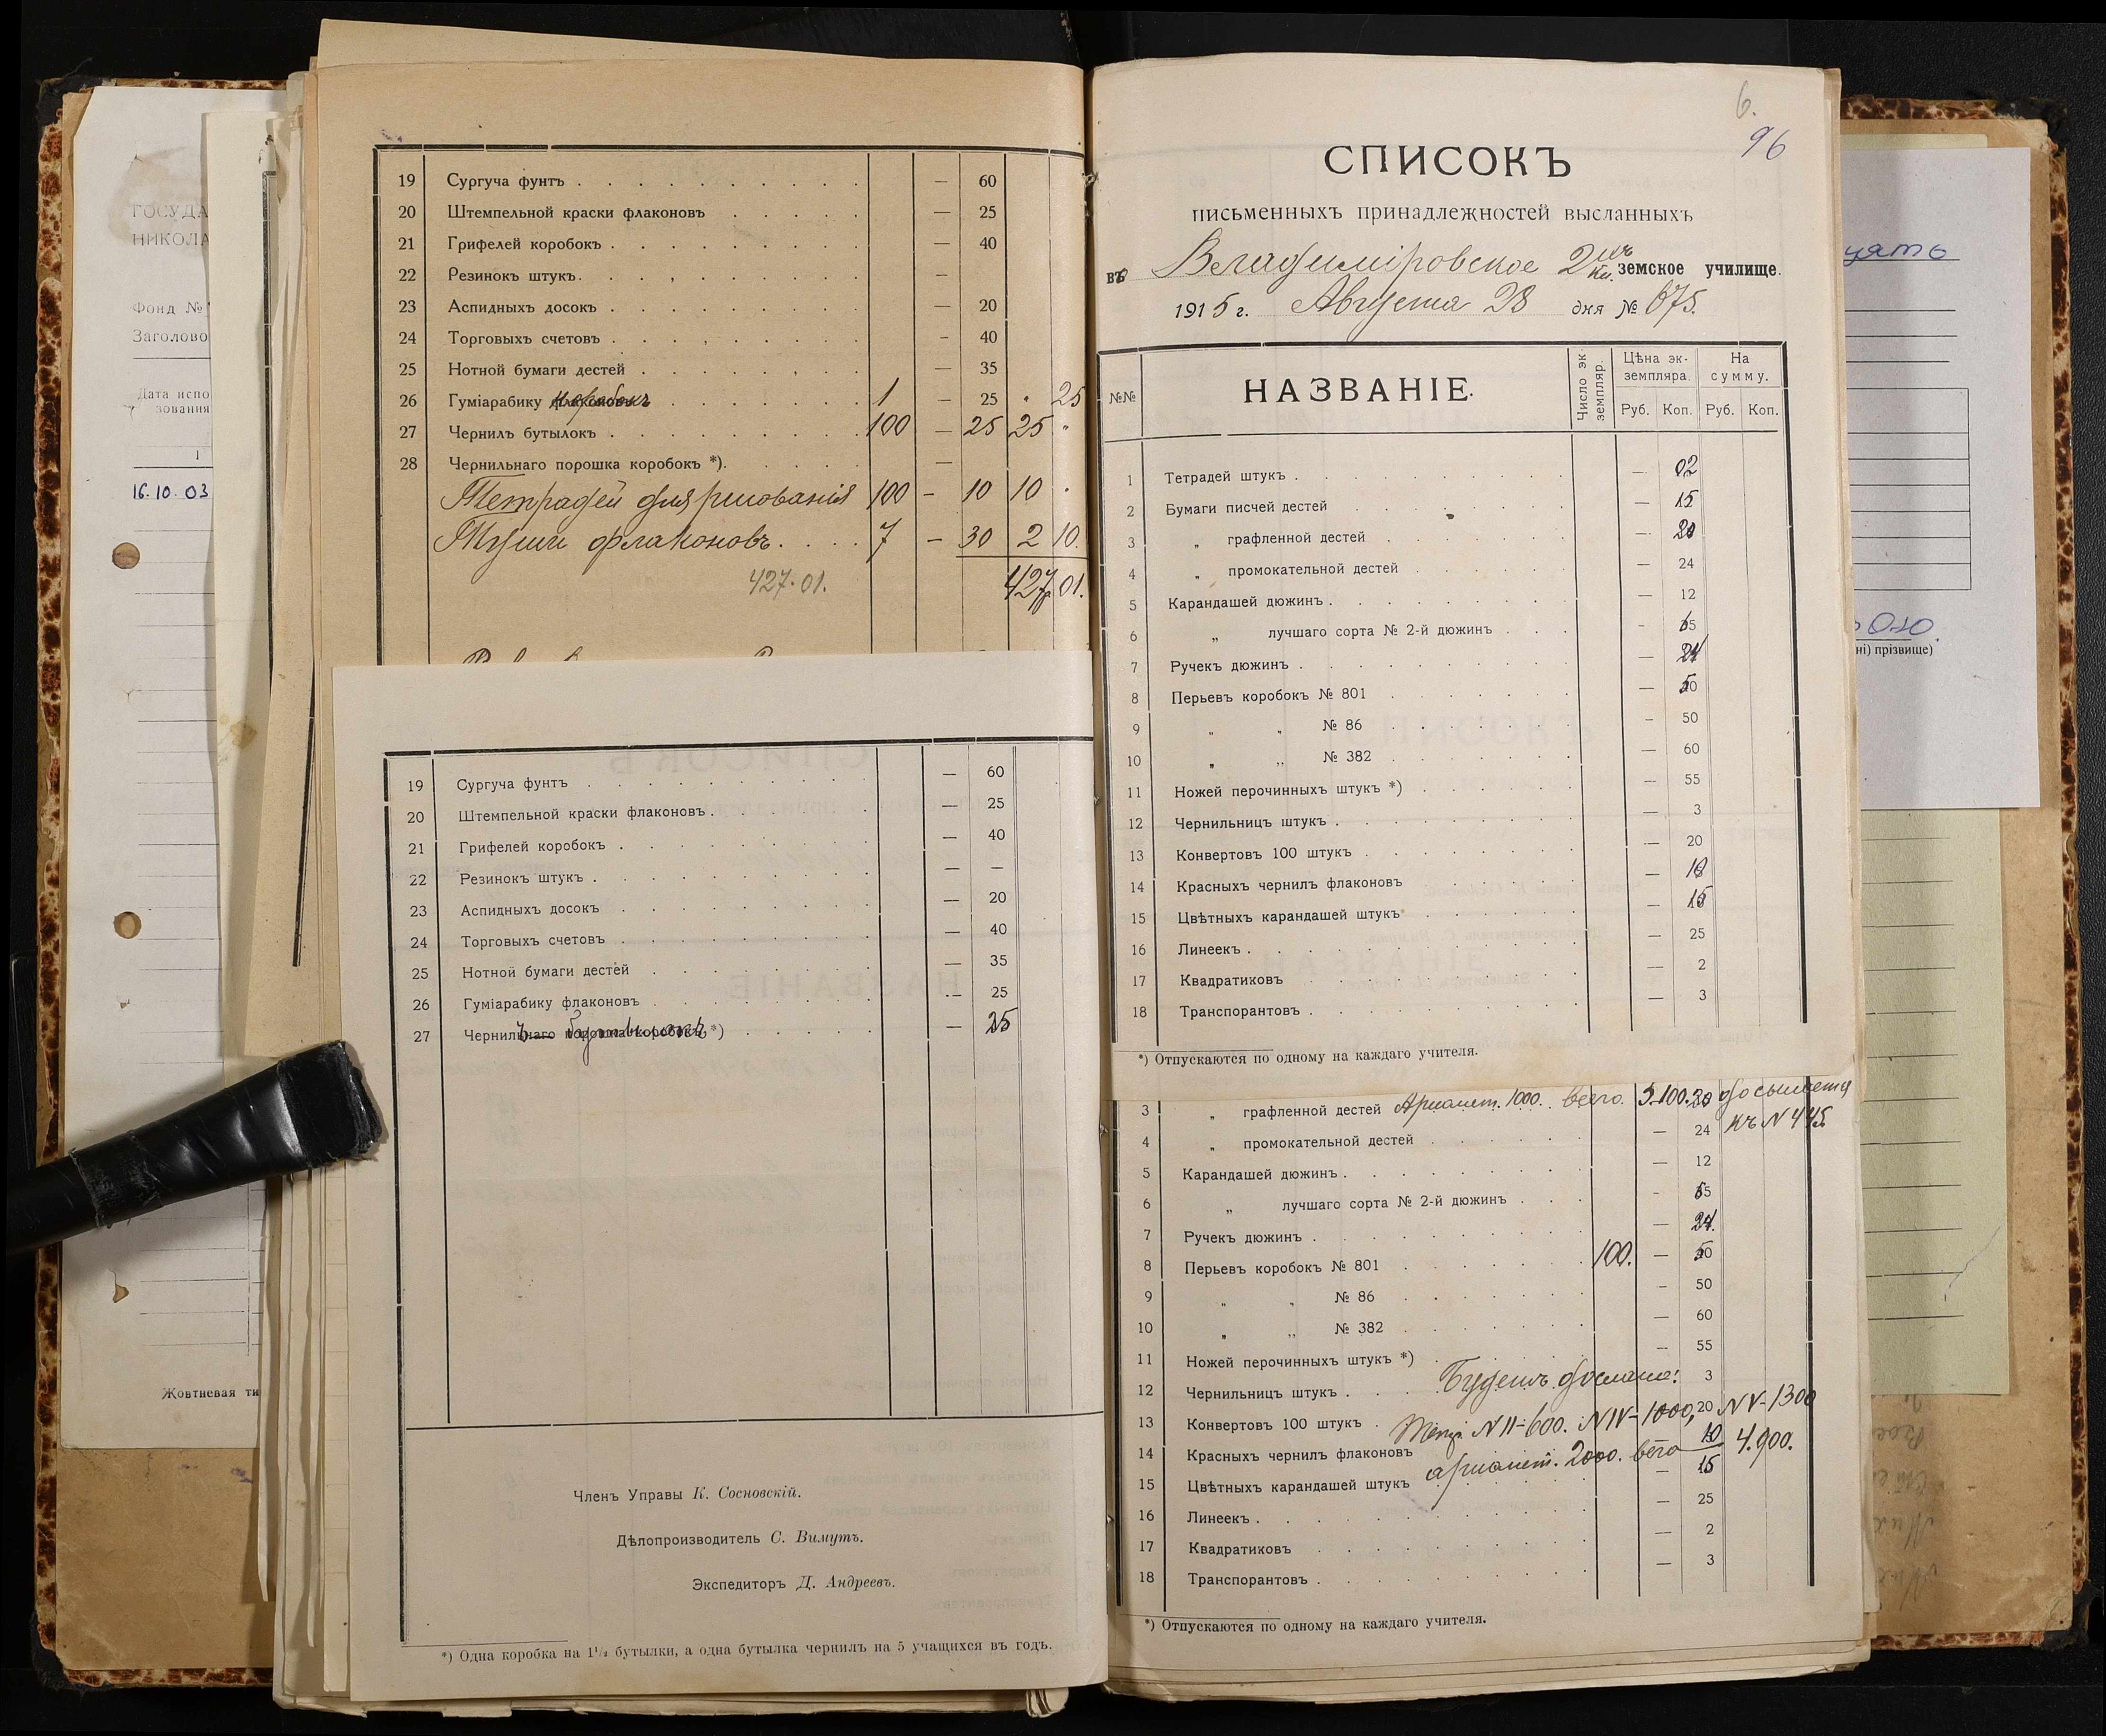 ГОСУДА
НИКОЛА
Фонд №
Заголово
Дата испо
зования
1
16.10.03
Жовтневая ти
19 Сургуча фунтъ — 60
20 Штемпельной краски флаконовъ — 25
21 Грифелей коробокъ — 40
22 Резинокъ штукъ —
23 Аспидныхъ досокъ — 20
24 Торговыхъ счетовъ — 40
25 Нотной бумаги дестей — 35
26 Гуміарабику коробокъ 1 — 25 " 25
27 Чернилъ бутылокъ 100 — 25 25 "
28 Чернильнаго порошка коробокъ *) —
Тетрадей для рисованія 100 — 10 10 "
Туши флаконовъ 7 — 30 2 10.
427.01. 427 01.
19 Сургуча фунтъ — 60
20 Штемпельной краски флаконовъ — 25
21 Грифелей коробокъ — 40
22 Резинокъ штукъ — —
23 Аспидныхъ досокъ — 20
24 Торговыхъ счетовъ — 40
25 Нотной бумаги дестей — 35
26 Гуміарабику флаконовъ — 25
27 Чернильнаго порошка коробокъ *) — 25
Членъ Управы К. Сосновскій.
Дѣлопроизводитель С. Вимутъ.
Экспедиторъ Д. Андреевъ.
*) Одна коробка на 1½ бутылки, а одна бутылка чернилъ на 5 учащихся въ годъ.
6.
96
СПИСОКЪ
письменныхъ принадлежностей высланныхъ
въ Владиміровское 2 кл. земское училище.
1915 г. Августа 28 дня № 675.
№№ НАЗВАНІЕ. Число экземпляр. Цѣна экземпляра. На сумму.
Руб. Коп. Руб. Коп.
1 Тетрадей штукъ — 02
2 Бумаги писчей дестей — 15
3 „ графленной дестей — 20
4 „ промокательной дестей — 24
5 Карандашей дюжинъ — 12
6 „ лучшаго сорта № 2-й дюжинъ - 65
7 Ручекъ дюжинъ — 24
8 Перьевъ коробокъ № 801 — 50
9 „ „ № 86 - 50
10 „ „ № 382 — 60
11 Ножей перочинныхъ штукъ *) — 55
12 Чернильницъ штукъ — 3
13 Конвертовъ 100 штукъ — 20
14 Красныхъ чернилъ флаконовъ — 10
15 Цвѣтныхъ карандашей штукъ — 15
16 Линеекъ — 25
17 Квадратиковъ — 2
18 Транспорантовъ — 3
*) Отпускаются по одному на каждаго учителя.
3 „ графленной дестей Арифмет. 1000. всего. 3.100. 20 досылается
4 „ промокательной дестей — 24 къ N 445
5 Карандашей дюжинъ — 12
6 „ лучшаго сорта № 2-й дюжинъ - 65
7 Ручекъ дюжинъ — 24
8 Перьевъ коробокъ № 801 100. — 50
9 „ „ № 86 - 50
10 „ „ № 382 — 60
11 Ножей перочинныхъ штукъ *) — 55
12 Чернильницъ штукъ Будетъ дослано: 3
13 Конвертовъ 100 штукъ N II-600. N IV-1000, 20 N V-1300
14 Красныхъ чернилъ флаконовъ арифмет. 2000. всего 10 4.900.
15 Цвѣтныхъ карандашей штукъ — 15
16 Линеекъ — 25
17 Квадратиковъ — 2
18 Транспорантовъ — 3
*) Отпускаются по одному на каждаго учителя.
цять
ні) прізвище)